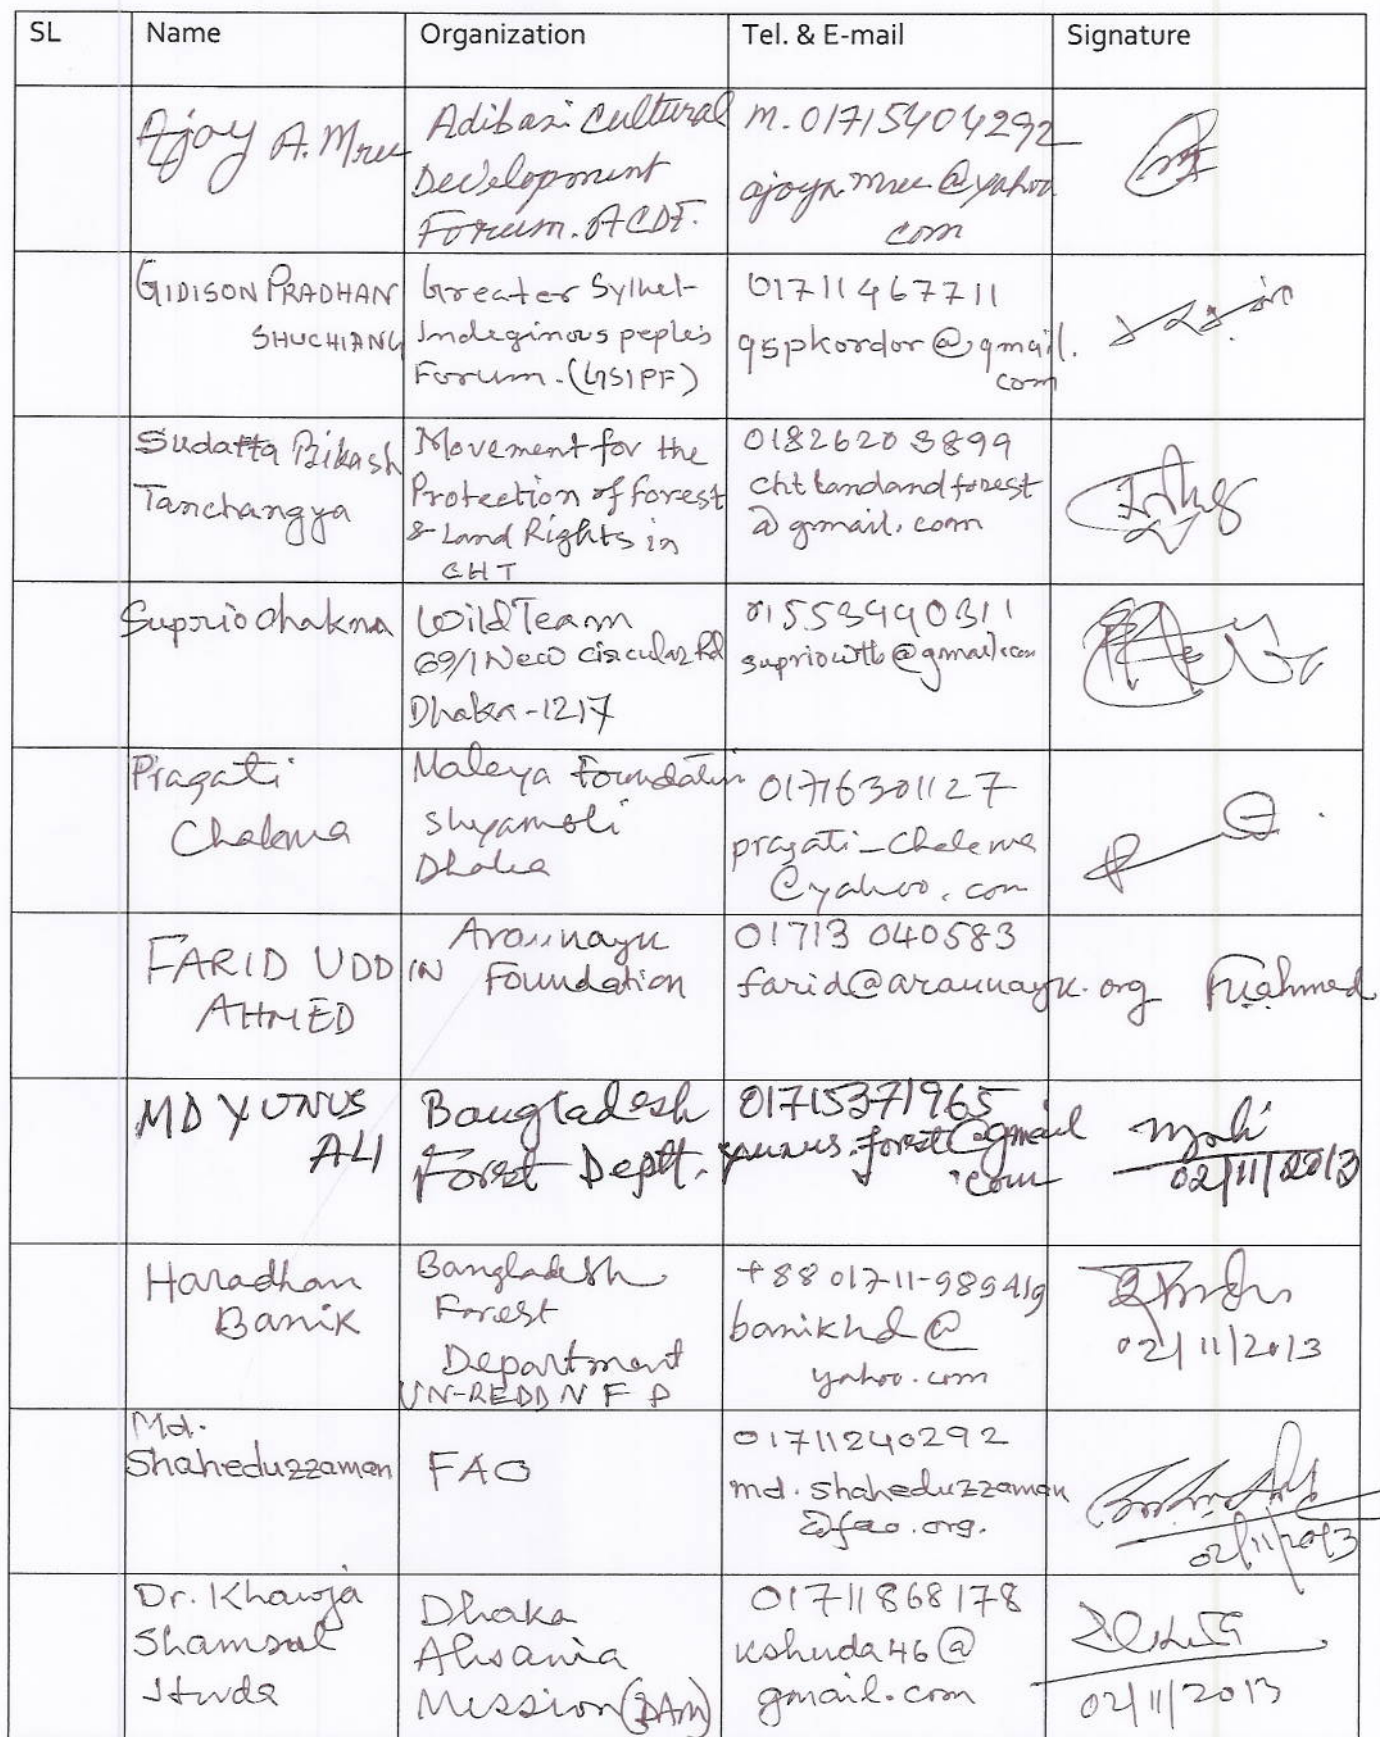 SL Name Organization Tel. & E-mail Signature
Ajoy A. Mree
Adibasi Cultural
Development
Forum. ACDF.
m. 01715404292
ajoya.mree@yahoo
com
GIDISON PRADHAN
SHUCHIANG
Greater Sylhet
Indeginous peples
Forum. (GSIPF)
01711467711
gspkordor@gmail.
com
Sudatta Bikash
Tanchangya
Movement for the
Protection of forest
& Land Rights in
CHT
01826203899
chtlandandforest
@gmail.com
Suprio Chakma
WildTeam
69/1 New Circular Rd
Dhaka-1217
01553440311
supriowtb@gmail.com
Pragati
Chakma
Maleya Foundation
Shyamoli
Dhaka
01716301127
pragati_chakma
@yahoo.com
FARID UDDIN
AHMED
Arannayk
Foundation
01713 040583
farid@arannayk.org
Fuahmed
MD YUNUS
ALI
Bangladesh
Forest Deptt.
01715371965
yunus.forest@gmail
.com
02/11/2013
Haradhan
Banik
Bangladesh
Forest
Department
UN-REDD NFP
+88 01711-989419
banikhd@
yahoo.com
02/11/2013
Md.
Shaheduzzaman
FAO
01711240292
md.shaheduzzaman
@fao.org.
02/11/2013
Dr. Khawja
Shamsul
Huda
Dhaka
Ahsania
Mission (DAM)
01711868178
kshuda46@
gmail.com
02/11/2013